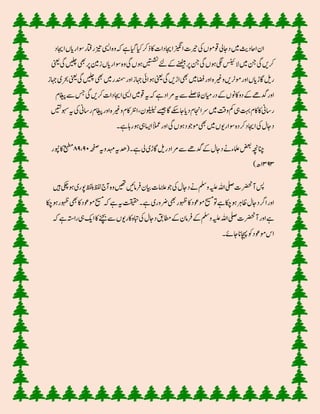 ان احادیث میں دجالی قوموں کی حیرت انگیز ایجادات کا ذکر کیا گیا ہے کہ وہ ایسی تیز رفتار سواریاں ایجاد
کریں گی جن میں لالٹینیں لگی ہوں گی جن پر بیٹھنے کے لئے نشستیں ہوں گی وہ سواریاں زمین پر بھی چلیں گی یعنی
ریل گاڑیاں اور موٹریں وغیرہ اور فضا میں بھی اڑیں گی یعنی ہوائی جہاز اور سمندر میں بھی چلیں گی یعنی بحری جہاز
اور گدھے کے دو کانوں کے درمیان فاصلے سے یہ مراد ہے کہ یہ قومیں ایسی ایجادات کریں گی جس سے پیغام
رسانی کا کام بہت ہی کم وقت میں سرانجام دیا جا سکے گا جیسے ٹیلیفون، انٹرکام وغیرہ اور پیغام رسانی کی یہ سہولتیں
دجال کی ایجاد کردہ سواریوں میں بھی موجود ہوں گی اور عملاً ایسا ہی ہو رہا ہے۔
چنانچہ بعض علماء نے دجال کے گدھے سے مراد ریل گاڑی لی ہے۔ (ھدیہ مہدویہ صفحہ ۸۹،۹۰ مطبع کانپور
۱۲۹۳ھ)
پس آنحضرت صلی اللہ علیہ وسلم نے دجال کی جو علامات بیان فرمائیں تھیں وہ آج لفظ بلفظ پوری ہو چکی ہیں
اور اگر دجال ظاہر ہو چکا ہے تو مسیح موعود کا ظہور بھی ضروری ہے۔ حقیقت یہ ہے کہ مسیح موعود کا بھی ظہور ہو چکا
ہے اور آنحضرت صلی اللہ علیہ وسلم کے فرمان کے مطابق دجال کی تباہ کاریوں سے بچنے کا ایک ہی راستہ ہے کہ
اس موعود کو پہچانا جائے۔